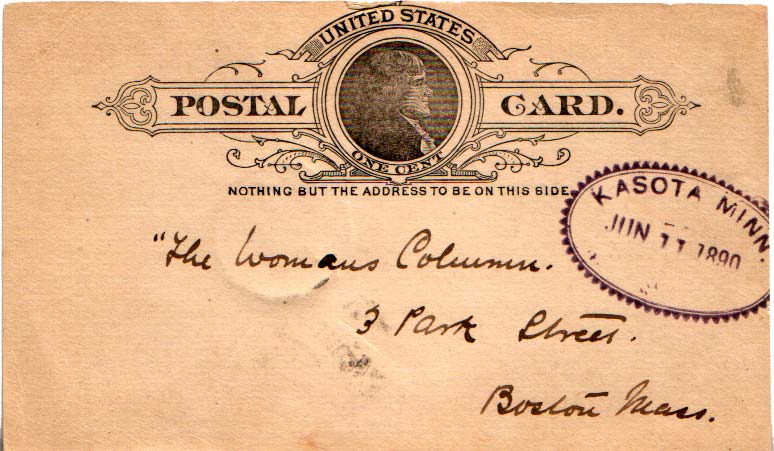 UNITED STATES
POSTAL CARD.
ONE CENT
NOTHING BUT THE ADDRESS TO BE ON THIS SIDE.
KASOTA MINN.
JUN 11 1890
"The Womans Column.
3 Park Street.
Boston Mass.